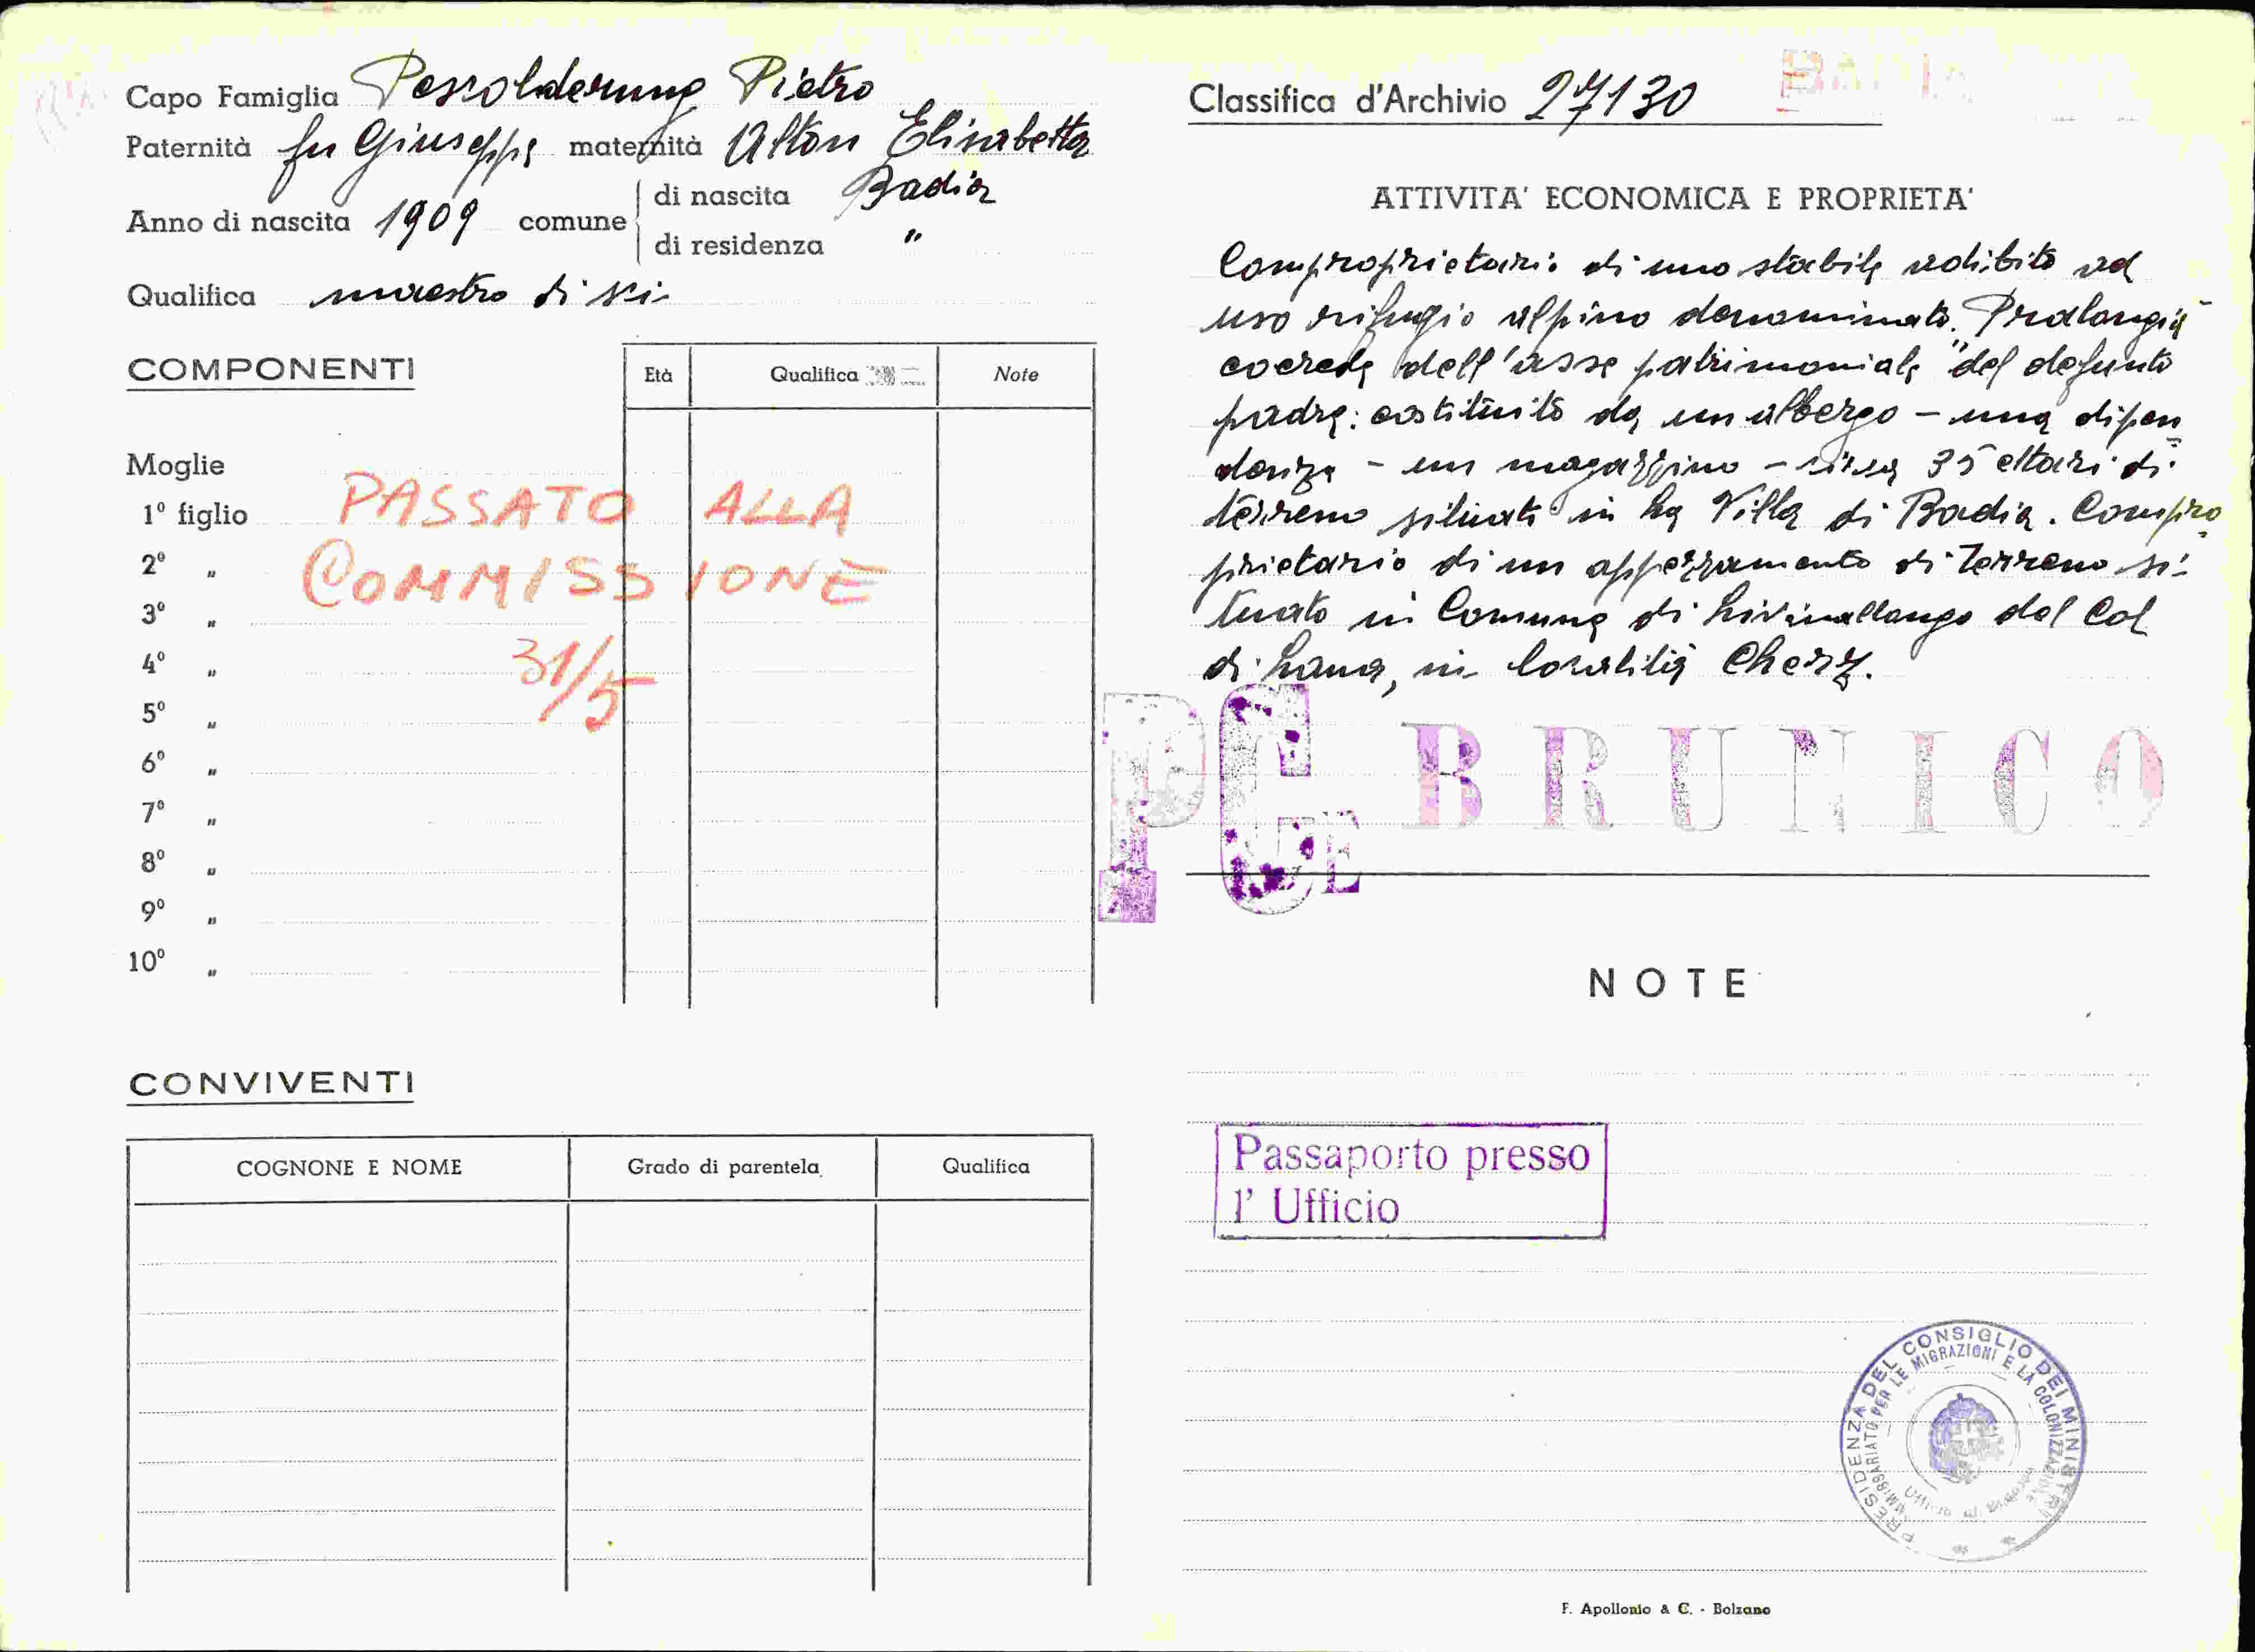 Capo Famiglia Pescolderung Pietro
Paternità fu Giuseppe maternità Alton Elisabetta
Anno di nascita 1909 comune
di nascita Badia
di residenza "
Qualifica maestro di sci
COMPONENTI
Età Qualifica Note
Moglie
1º figlio
2º "
3º "
4º "
5º "
6º "
7º "
8º "
9º "
10º "
PASSATO ALLA
COMMISSIONE
31/5
CONVIVENTI
COGNONE E NOME Grado di parentela Qualifica
Classifica d'Archivio 27130
BADIA
ATTIVITA' ECONOMICA E PROPRIETA'
Comproprietario di uno stabile adibito ad
uso rifugio alpino denominato "Pralongià"
coerede dell'asse patrimoniale del defunto
padre: costituito da un albergo - una dipen
denza - un magazzino - circa 35 ettari di
terreno situati in La Villa di Badia. Compro
prietario di un appezzamento di terreno si-
tuato in Comune di Livinallongo del Col
di Lana, in località Cherz.
PCE BRUNICO
NOTE
Passaporto presso
l' Ufficio
PRESIDENZA DEL CONSIGLIO DEI MINISTRI
COMMISSARIATO PER LE MIGRAZIONI E LA COLONIZZAZIONE
Ufficio di
F. Apollonio & C. - Bolzano